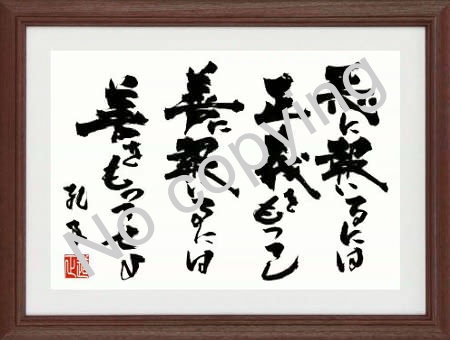 悪に報いるには
正義をもってし
善に報いるには
善をもってせよ
孔子
No copying